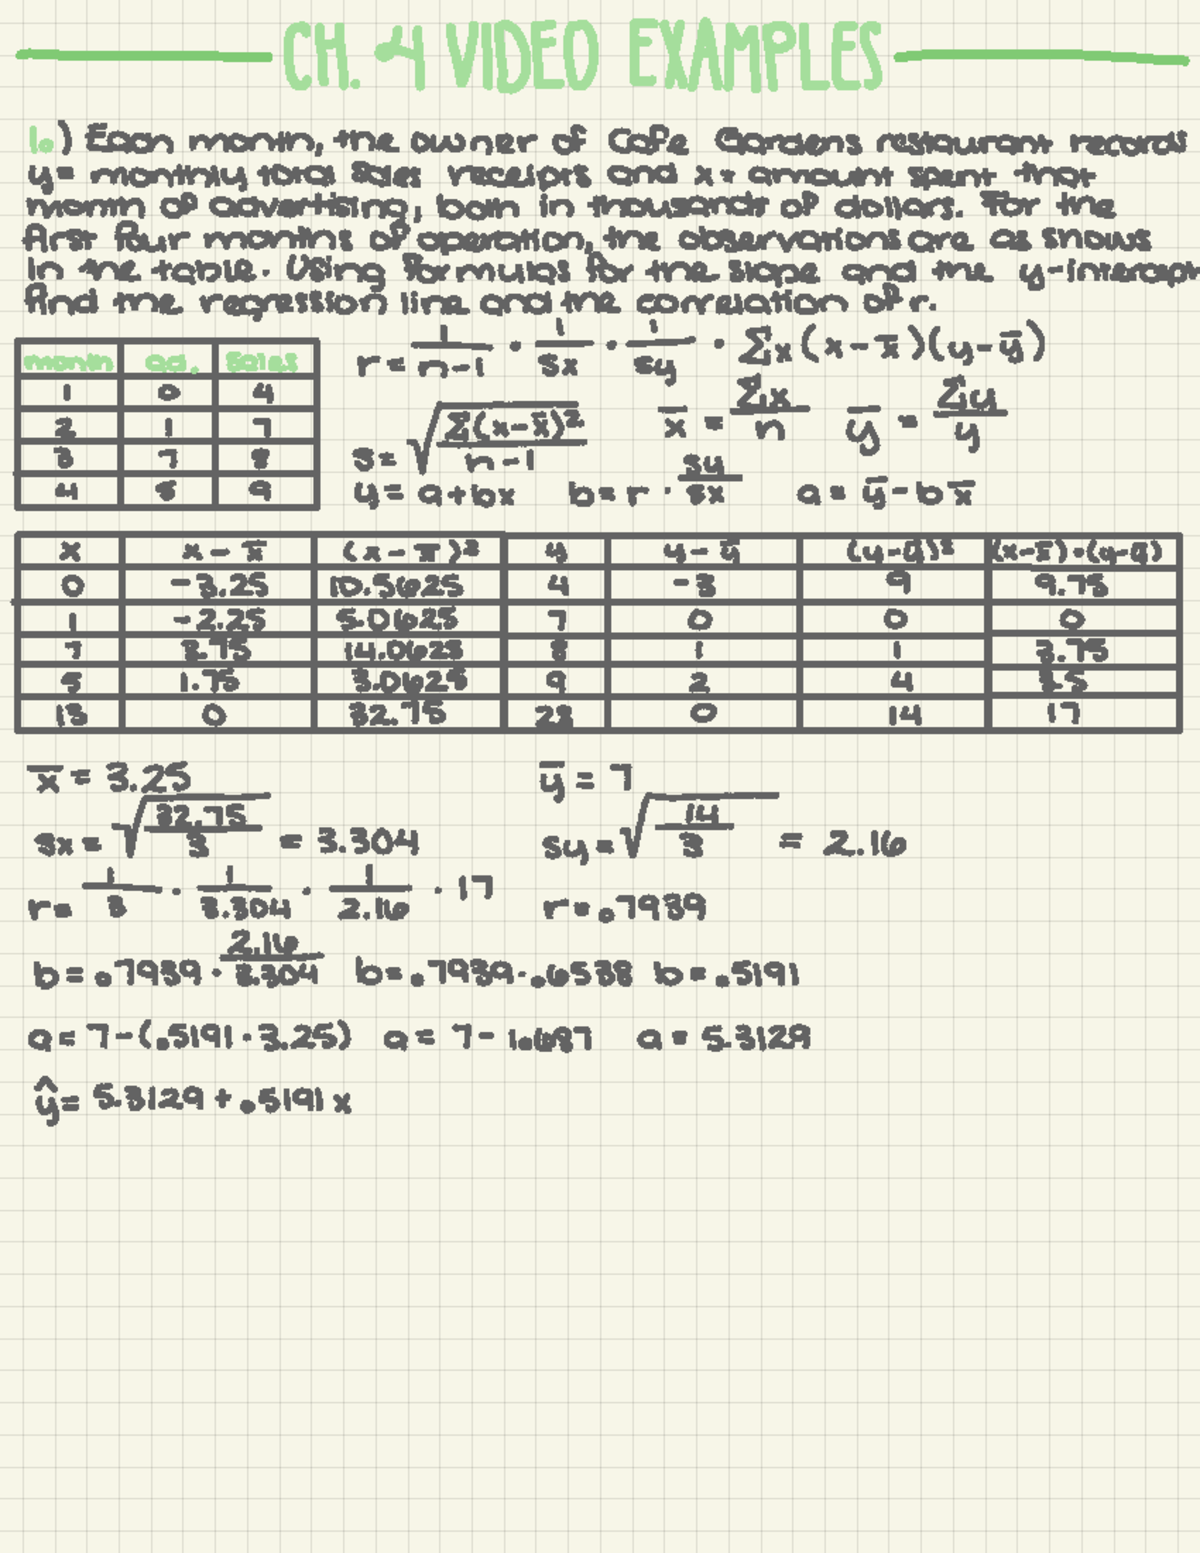 CH. 4 VIDEO EXAMPLES
1.) Each month, the owner of Cafe Gardens restaurant records
y = monthly total Sales receipts and x = amount spent that
month of advertising, both in thousands of dollars. For the
first four months of operation, the observations are as shows
in the table. Using formulas for the slope and the y-intercept
find the regression line and the correlation of r.
r = 1/n-1 · 1/sx · 1/sy · Σx(x-x̄)(y-ȳ)
month ad. Sales
1 0 4
2 1 7
3 7 8
4 5 9
s = √Σ(x-x̄)²/n-1 x̄ = Σx/n ȳ = Σy/y
y = a+bx b = r · sy/sx a = ȳ-bx̄
x x-x̄ (x-x̄)² y y-ȳ (y-ȳ)² (x-x̄)·(y-ȳ)
0 -3.25 10.5625 4 -3 9 9.75
1 -2.25 5.0625 7 0 0 0
7 3.75 14.0625 8 1 1 3.75
5 1.75 3.0625 9 2 4 3.5
13 0 32.75 28 0 14 17
x̄ = 3.25 ȳ = 7
sx = √32.75/3 = 3.304 sy = √14/3 = 2.16
r = 1/3 · 1/3.304 · 1/2.16 · 17 r = .7939
b = .7939 · 2.16/3.304 b = .7939 · .6538 b = .5191
a = 7-(.5191 · 3.25) a = 7-1.687 a = 5.3129
ŷ = 5.3129 + .5191x